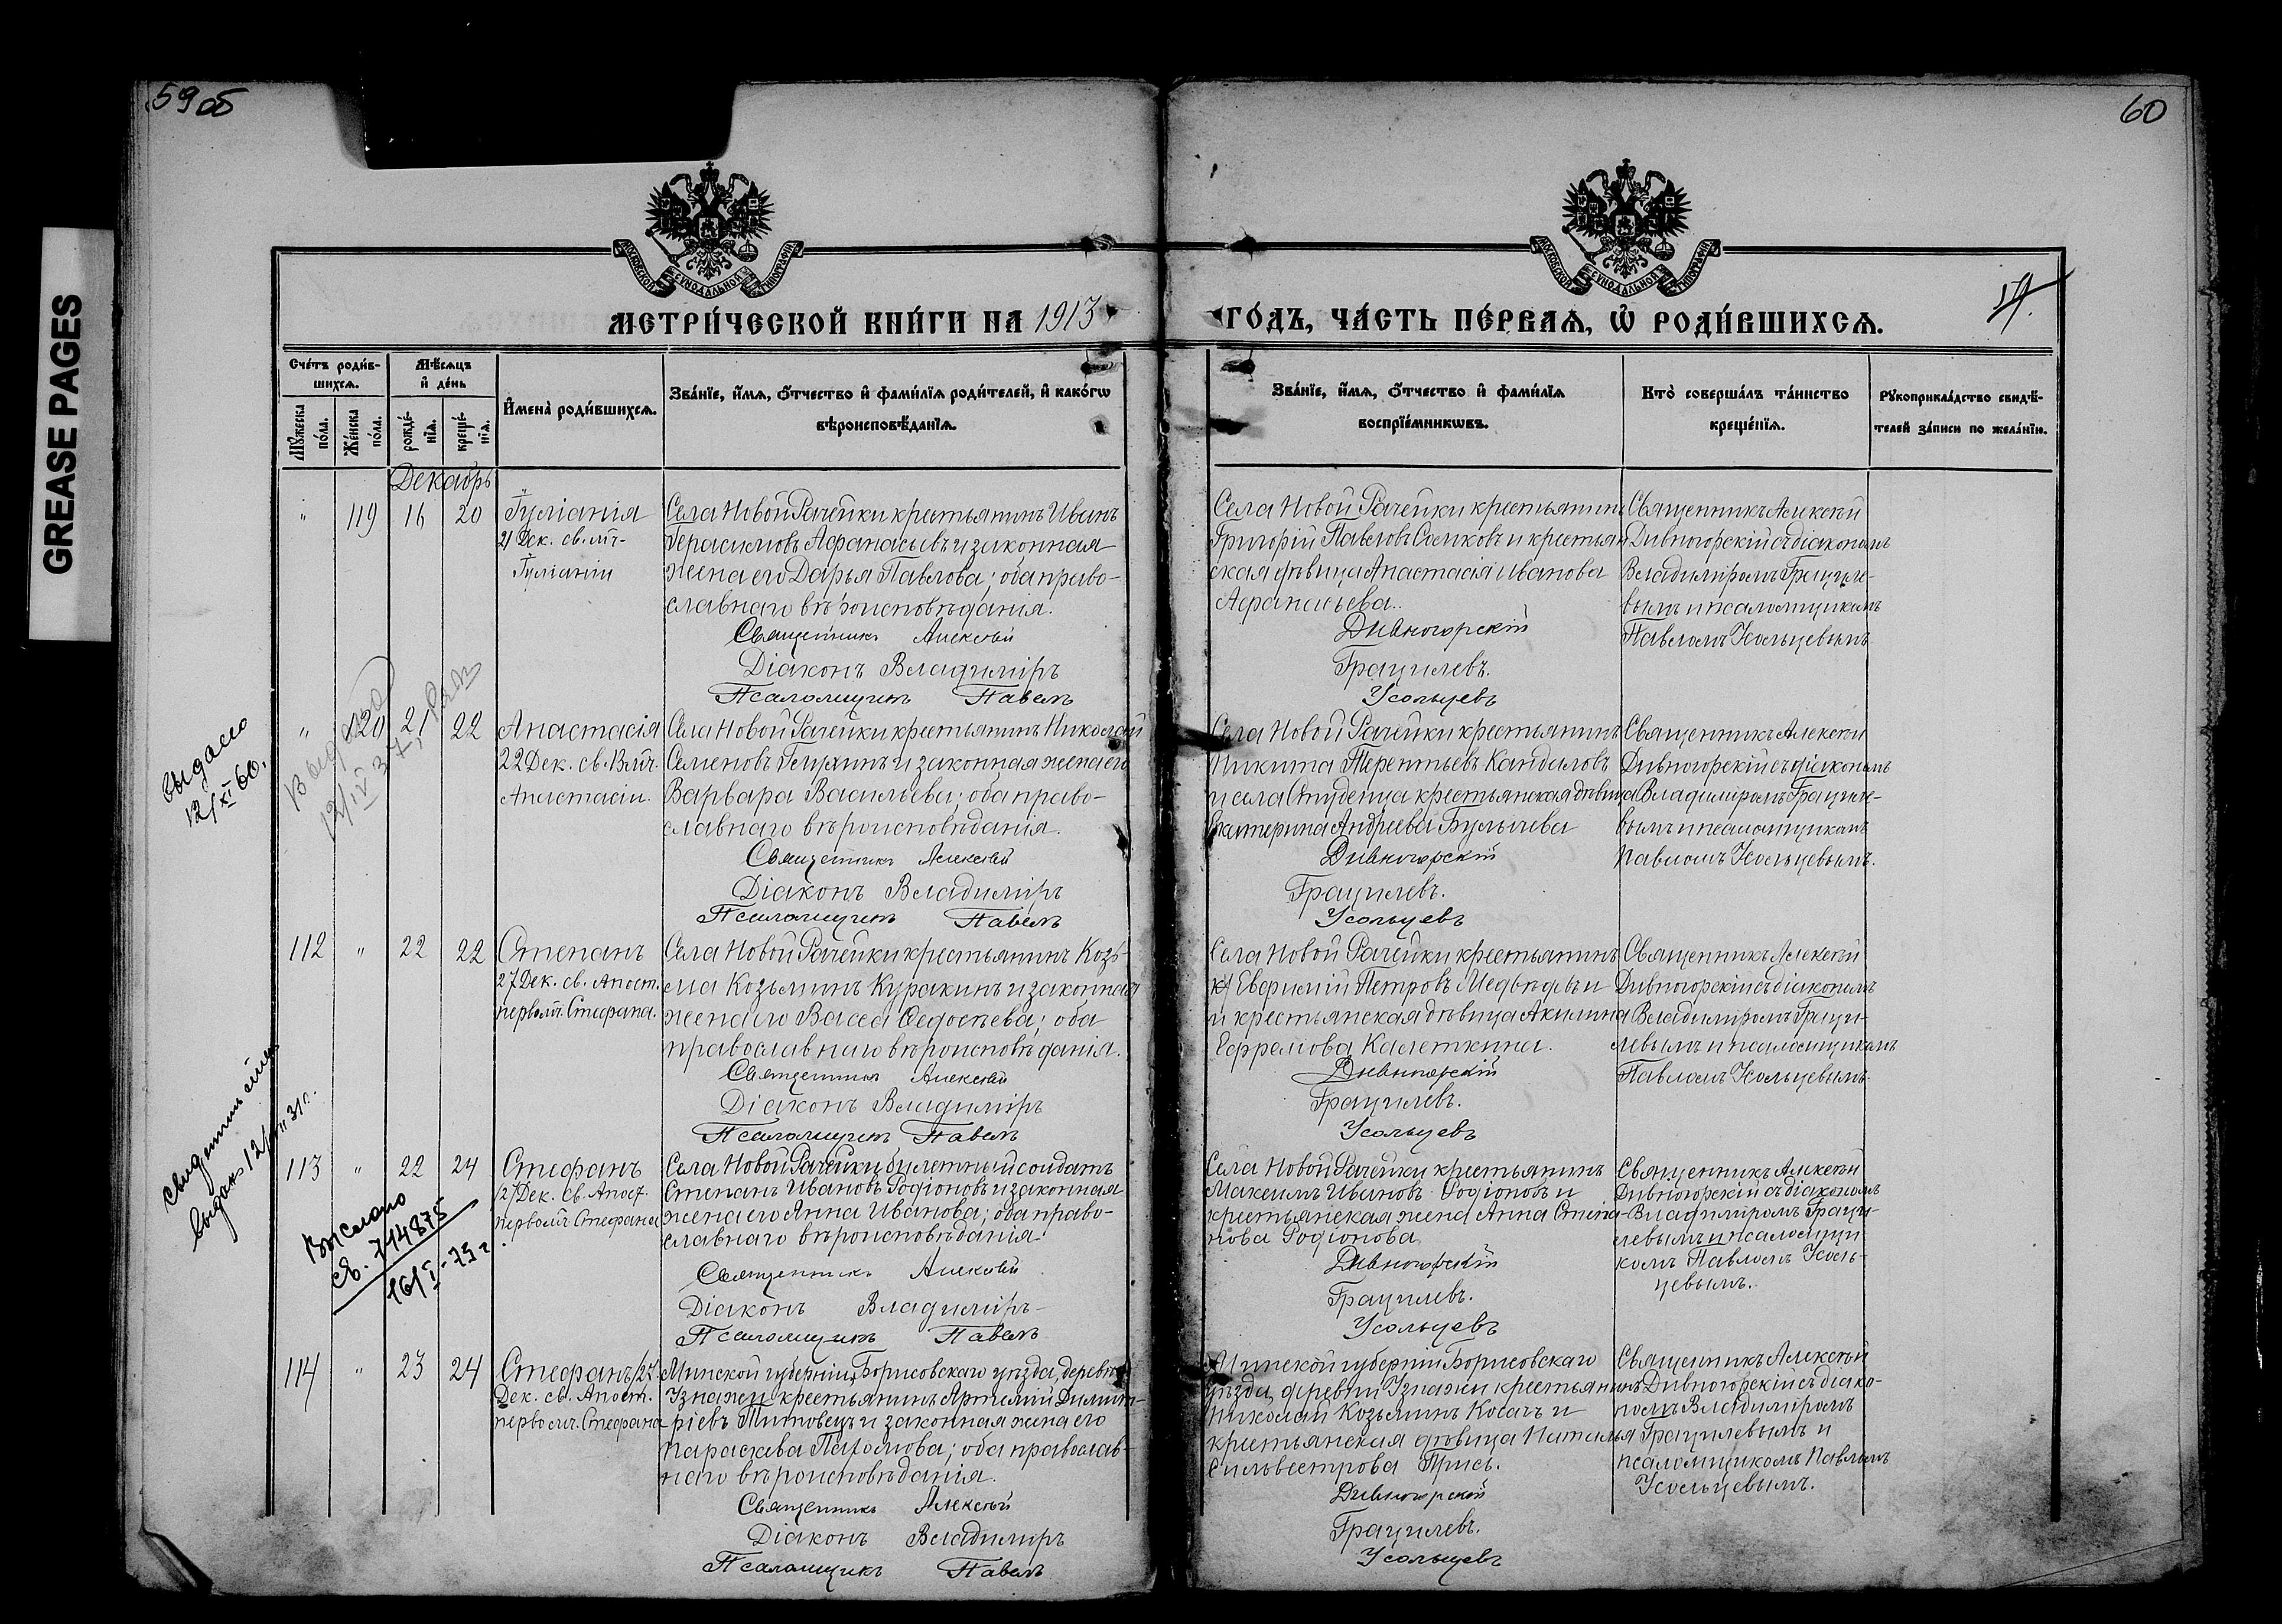 59 об
60
GREASE PAGES
МОСКОВСКОЙ СѴНОДАЛЬНОЙ ТИПОГРАФІИ
МОСКОВСКОЙ СѴНОДАЛЬНОЙ ТИПОГРАФІИ
МЕТРИ́ЧЕСКОЙ КНИ́ГИ НА 1913
ГО́ДЪ, ЧА́СТЬ ПЕ́РВАѦ, Ѡ҆ РОДИ́ВШИХСѦ.
Сче́тъ роди́в-
шихсѧ.
Мѣ́сѧцъ
и҆ де́нь
Мꙋ́жеска
по́ла.
Же́нска
по́ла.
рожде́-
нїѧ.
креще́-
нїѧ.
И҆мена̀ роди́вшихсѧ.
Зва́нїе, и҆́мѧ, ѻ҆́тчество и҆ фами́лїѧ роди́телей, и҆ како́гѡ
вѣроисповѣ́данїѧ.
Зва́нїе, и҆́мѧ, ѻ҆́тчество и҆ фами́лїѧ
воспрїе́мникѡвъ.
Кто̀ соверша́лъ та́инство
креще́нїѧ.
Рꙋкоприкла́дство свидѣ́-
телей за́писи по жела́нїю.
Декабрь
" 119 16 20 Іуліанія
21 Дек. св. мч-
Іуліаніи
Села Новой Рачейки крестьянинъ Иванъ
Герасимовъ Афанасьевъ и законная
жена его Дарья Павлова; оба право-
славнаго вѣроисповѣданія.
Священникъ Алексѣй
Діаконъ Владиміръ
Псаломщикъ Павелъ
Села Новой Рачейки крестьянинъ
Григорій Павловъ и крестьян
ская дѣвица Анастасія Иванова
Афанасьева.
Дивногорскій
Грацилевъ.
Усольцевъ
Священникъ Алексѣй
Дивногорскій съ діакономъ
Владиміромъ Грациле-
вымъ и псаломщикомъ
Павломъ Усольцевымъ
" 120 21 22 Анастасія
22 Дек. св. Вмч.
Анастасіи.
Села Новой Рачейки крестьянинъ Николай
Семеновъ и законная жена его
Варвара Васильева; оба право-
славнаго вѣроисповѣданія.
Священникъ Алексѣй
Діаконъ Владиміръ
Псаломщикъ Павелъ
Села Новой Рачейки крестьянинъ
Никита Терентьевъ Кандаловъ
и села Студенца крестьянская дѣвица
Екатерина Андреева Булычева
Дивногорскій
Грацилевъ.
Усольцевъ
Священникъ Алексѣй
Дивногорскій съ діакономъ
Владиміромъ Грациле-
вымъ и псаломщикомъ
Павломъ Усольцевымъ.
112 " 22 22 Степанъ
27 Дек. св. Апост.
первомч. Стефана.
Села Новой Рачейки крестьянинъ Козь-
ма Козьминъ Куракинъ и законная
жена его Васса Ѳедосѣева; оба
православнаго вѣроисповѣданія.
Священникъ Алексѣй
Діаконъ Владиміръ
Псаломщикъ Павелъ
Села Новой Рачейки крестьянинъ
Евфимій Петровъ Медвѣдевъ и
и крестьянская дѣвица Акилина
Ефремова Калеткина.
Дивногорскій
Грацилевъ.
Усольцевъ
Священникъ Алексѣй
Дивногорскій съ діакономъ
Владиміромъ Граци-
левымъ и псаломщикомъ
Павломъ Усольцевымъ.
113 " 22 24 Стефанъ
27 Дек. Св. Апост.
первомч. Стефана
Села Новой Рачейки билетный солдатъ
Степанъ Ивановъ Родіоновъ и законная
жена его Анна Иванова; оба право-
славнаго вѣроисповѣданія.
Священникъ Алексѣй
Діаконъ Владиміръ
Псаломщикъ Павелъ
Села Новой Рачейки крестьянинъ
Максимъ Ивановъ Родіоновъ и
крестьянская жена Анна Степа-
нова Родіонова
Дивногорскій
Грацилевъ.
Усольцевъ
Священникъ Алексѣй
Дивногорскій съ діакономъ
Владиміромъ Граци-
левымъ и псаломщи-
комъ Павломъ Усоль-
цевымъ.
114 " 23 24 Стефанъ/27
Дек. св. Апост.
первомч. Стефана
Минской губерніи, Борисовскаго уѣзда, деревни
Узнажи крестьянинъ Артемій Димит-
ріевъ Титовецъ и законная жена его
Параскева Пахомова; оба православ-
наго вѣроисповѣданія.
Священникъ Алексѣй
Діаконъ Владиміръ
Псаломщикъ Павелъ
Минской губерніи Борисовскаго
уѣзда, деревни Узнажи крестьянинъ
Николай Козьминъ Косачъ и
крестьянская дѣвица Наталья
Сильвестрова Прись.
Дивногорскій
Грацилевъ.
Усольцевъ
Священникъ Алексѣй
Дивногорскій съ діако-
номъ Владиміромъ
Грацилевымъ и
псаломщикомъ Павломъ
Усольцевымъ.
выдано
12/XI 60.
12/IV 37,
выдано 12/ 31 г.
Выслано
св. 714875
16/I-75 г